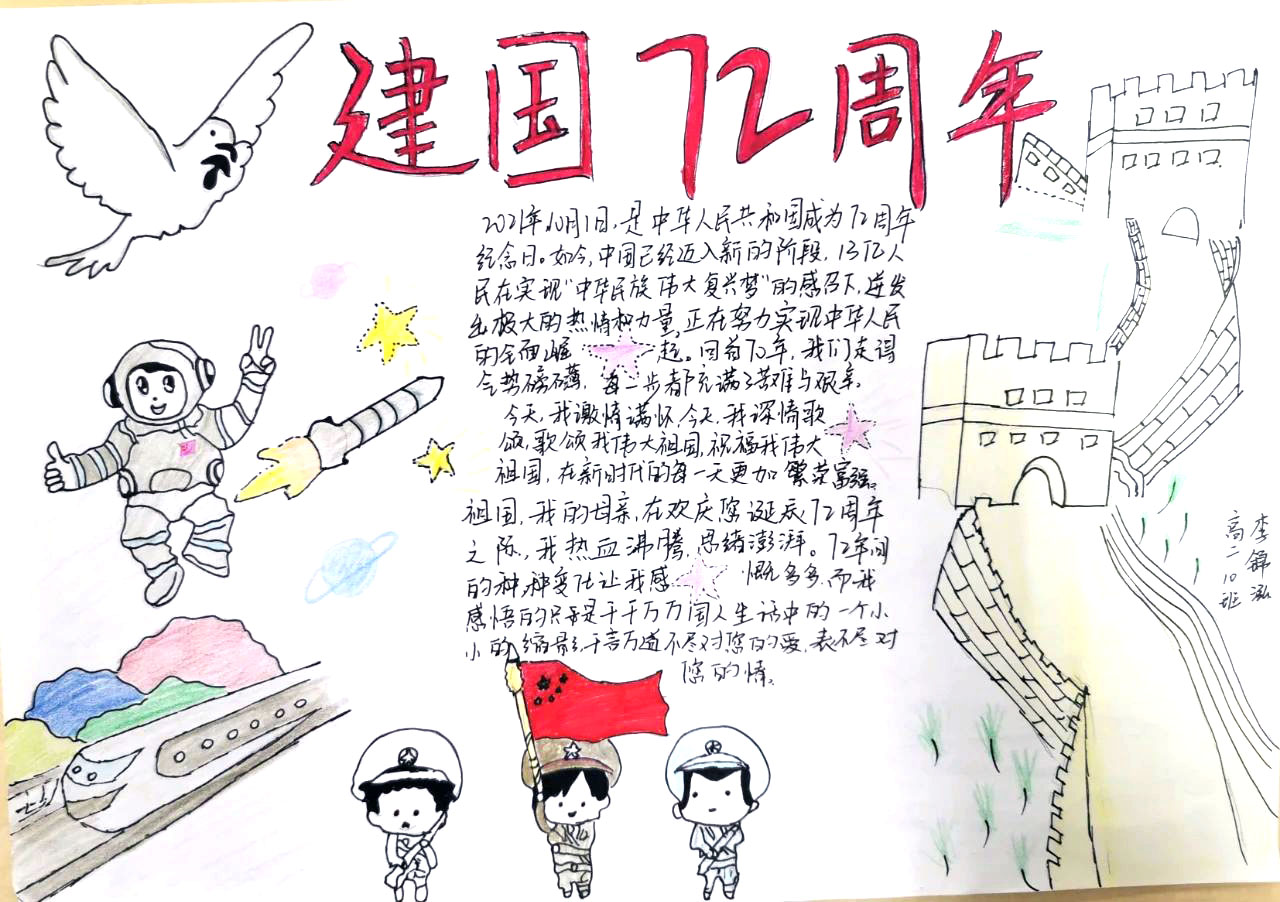 建国72周年
2021年10月1日,是中华人民共和国成为72周年
纪念日。如今,中国已经迈入新的阶段,13亿人
民在实现"中华民族伟大复兴梦"的感召下,迸发
出极大的热情和力量,正在努力实现中华人民
的全面崛一起。回首70年,我们走得
气势磅礴,每一步都充满了苦难与艰辛。
今天,我激情满怀,今天,我深情歌
颂,歌颂我伟大祖国,祝福我伟大
祖国,在新时代的每一天更加繁荣富强。
祖国,我的母亲,在欢庆您诞辰72周年
之际,我热血沸腾,思绪澎湃。72年间
的种种变化让我感慨多多,而我
感悟的只是千千万万国人生活中的一个小
小的缩影,千言万道不尽对您的爱,表不尽对
您的情。
李锦泓
高二10班